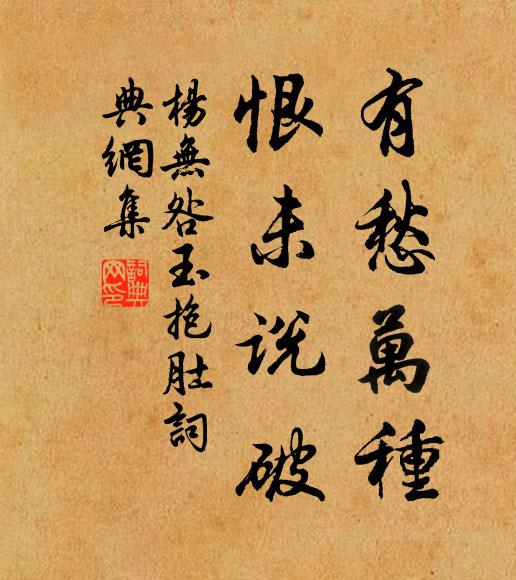 有愁萬種
恨未說破
楊無咎玉抱肚詞
典網集
詞典網印